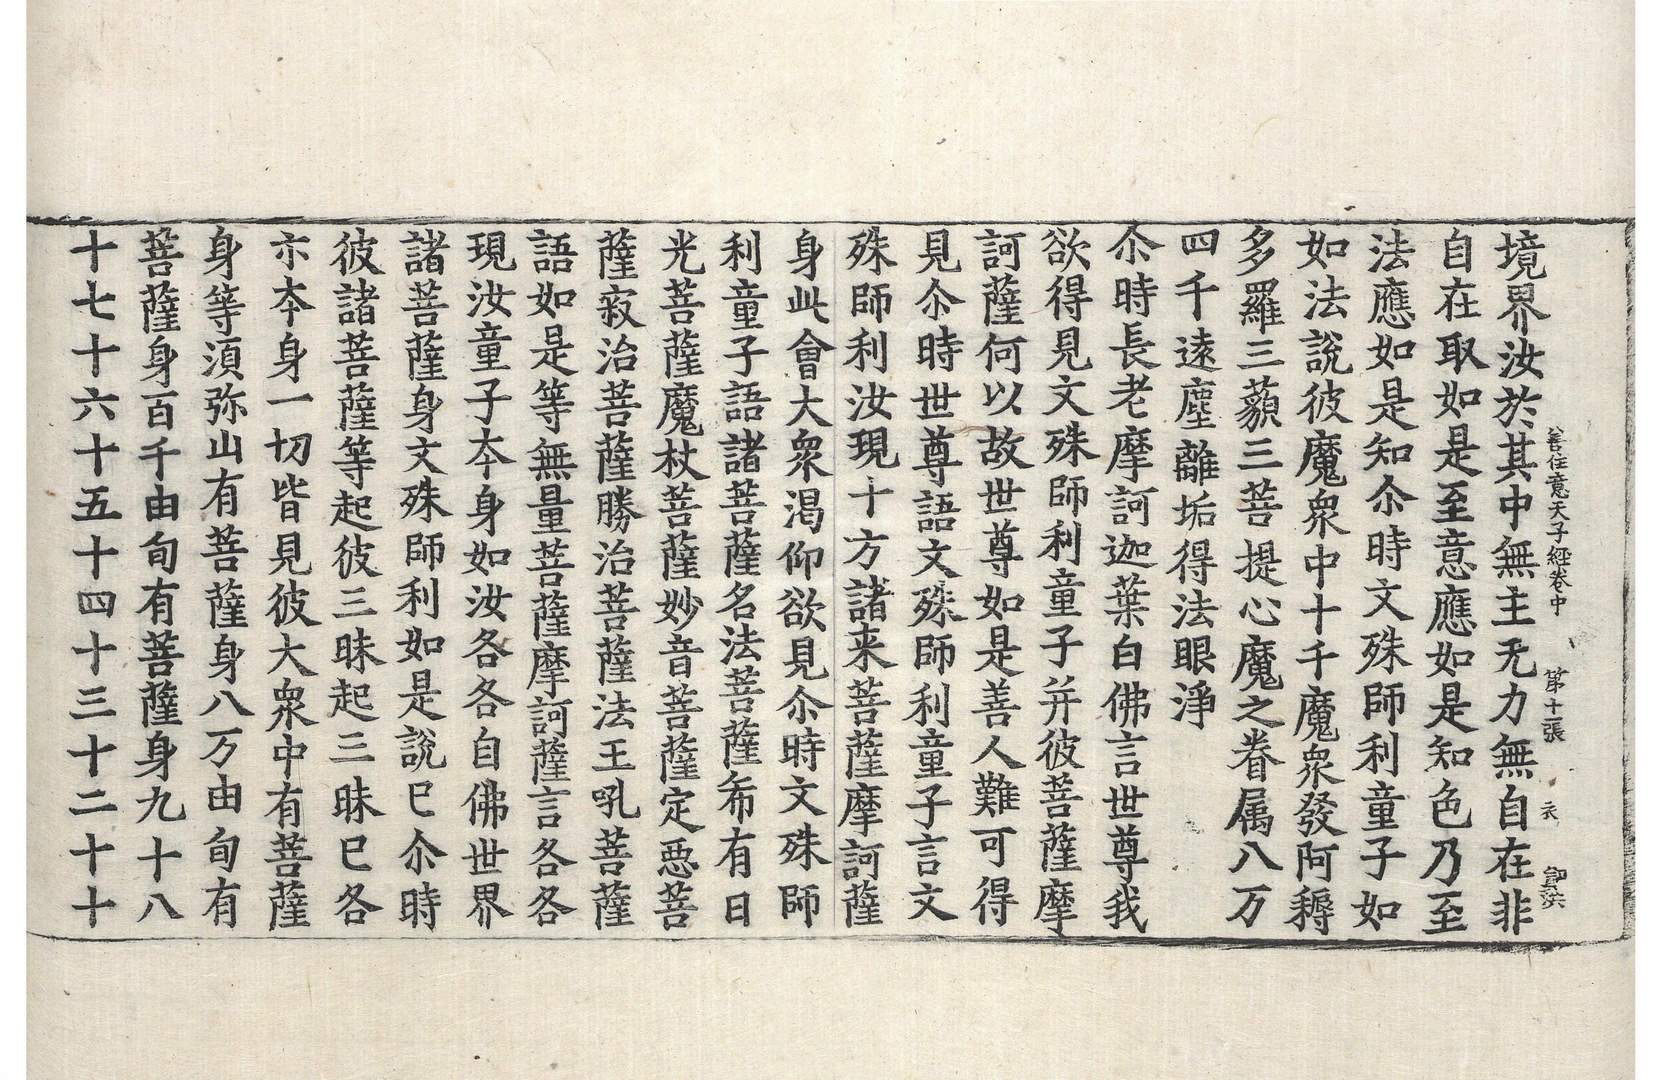 善住意天子經卷中 第十張 衣
境界汝於其中無主无力無自在非
自在取如是至意應如是知色乃至
法應如是知尒時文殊師利童子如
如法說彼魔衆中十千魔衆發阿耨
多羅三藐三菩提心魔之眷属八万
四千遠塵離垢得法眼淨
尒時長老摩訶迦葉白佛言世尊我
欲得見文殊師利童子并彼菩薩摩
訶薩何以故世尊如是善人難可得
見尒時世尊語文殊師利童子言文
殊師利汝現十方諸来菩薩摩訶薩
身此會大衆渴仰欲見尒時文殊師
利童子語諸菩薩名法菩薩布有日
光菩薩魔杖菩薩妙音菩薩定悪菩
薩寂治菩薩勝治菩薩法王吼菩薩
語如是等無量菩薩摩訶薩言各各
現汝童子夲身如汝各各自佛世界
諸菩薩身文殊師利如是說已尒時
彼諸菩薩等起彼三昧起三昧已各
示夲身一切皆見彼大衆中有菩薩
身等湏弥山有菩薩身八万由旬有
菩薩身百千由旬有菩薩身九十八
十七十六十五十四十三十二十十